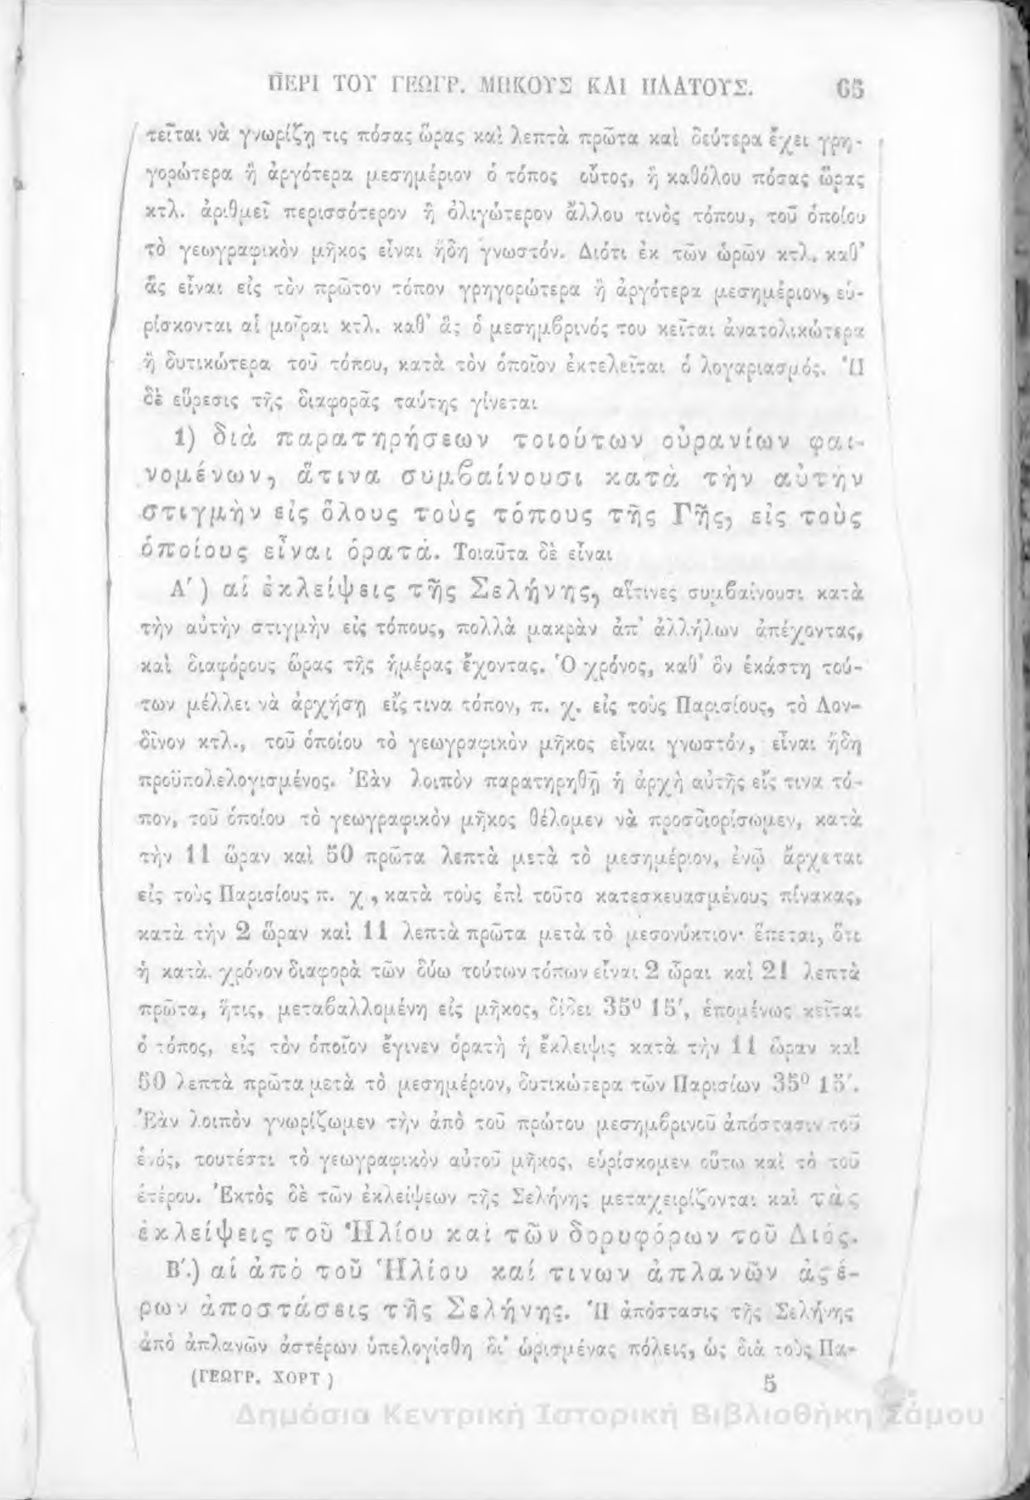 ΠΕΡΙ ΤΟΥ ΓΕΩΓΡ. ΜΗΚΟΥΣ ΚΑΙ ΠΛΑΤΟΥΣ. 65
τεῖται νὰ γνωρίζῃ τις πόσας ὥρας καὶ λεπτὰ πρῶτα καὶ δεύτερα ἔχει γρη-
γορώτερα ἢ ἀργότερα μεσημέριον ὁ τόπος οὗτος, ἢ καθόλου πόσας ὥρας
κτλ. ἀριθμεῖ περισσότερον ἢ ὀλιγώτερον ἄλλου τινὸς τόπου, τοῦ ὁποίου
τὸ γεωγραφικὸν μῆκος εἶναι ἤδη γνωστόν. Διότι ἐκ τῶν ὡρῶν κτλ. καθ'
ἃς εἶναι εἰς τὸν πρῶτον τόπον γρηγορώτερα ἢ ἀργότερα μεσημέριον, εὑ-
ρίσκονται αἱ μοῖραι κτλ. καθ' ἃς ὁ μεσημβρινός του κεῖται ἀνατολικώτερα
ἢ δυτικώτερα τοῦ τόπου, κατὰ τὸν ὁποῖον ἐκτελεῖται ὁ λογαριασμός. Ἡ
δὲ εὕρεσις τῆς διαφορᾶς ταύτης γίνεται
1) διὰ παρατηρήσεων τοιούτων οὐρανίων φαι-
νομένων, ἅτινα συμβαίνουσι κατὰ τὴν αὐτὴν
στιγμὴν εἰς ὅλους τοὺς τόπους τῆς Γῆς, εἰς τοὺς
ὁποίους εἶναι ὁρατά. Τοιαῦτα δὲ εἶναι
Α΄) αἱ ἐκλείψεις τῆς Σελήνης, αἵτινες συμβαίνουσι κατὰ
τὴν αὐτὴν στιγμὴν εἰς τόπους, πολλὰ μακρὰν ἀπ' ἀλλήλων ἀπέχοντας,
καὶ διαφόρους ὥρας τῆς ἡμέρας ἔχοντας. Ὁ χρόνος, καθ' ὃν ἑκάστη τού-
των μέλλει νὰ ἀρχήσῃ εἴς τινα τόπον, π. χ. εἰς τοὺς Παρισίους, τὸ Λον-
δῖνον κτλ., τοῦ ὁποίου τὸ γεωγραφικὸν μῆκος εἶναι γνωστόν, εἶναι ἤδη
προϋπολελογισμένος. Ἐὰν λοιπὸν παρατηρηθῇ ἡ ἀρχὴ αὐτῆς εἴς τινα τό-
πον, τοῦ ὁποίου τὸ γεωγραφικὸν μῆκος θέλομεν νὰ προσδιορίσωμεν, κατὰ
τὴν 11 ὥραν καὶ 50 πρῶτα λεπτὰ μετὰ τὸ μεσημέριον, ἐνῷ ἄρχεται
εἰς τοὺς Παρισίους π. χ, κατὰ τοὺς ἐπὶ τοῦτο κατεσκευασμένους πίνακας,
κατὰ τὴν 2 ὥραν καὶ 11 λεπτὰ πρῶτα μετὰ τὸ μεσονύκτιον· ἕπεται, ὅτι
ἡ κατὰ χρόνον διαφορὰ τῶν δύω τούτων τόπων εἶναι 2 ὧραι καὶ 21 λεπτὰ
πρῶτα, ἥτις, μεταβαλλομένη εἰς μῆκος, δίδει 35⁰ 15', ἑπομένως κεῖται
ὁ τόπος, εἰς τὸν ὁποῖον ἔγινεν ὁρατὴ ἡ ἔκλειψις κατὰ τὴν 11 ὥραν καὶ
50 λεπτὰ πρῶτα μετὰ τὸ μεσημέριον, δυτικώτερα τῶν Παρισίων 35⁰ 15'.
Ἐὰν λοιπὸν γνωρίζωμεν τὴν ἀπὸ τοῦ πρώτου μεσημβρινοῦ ἀπόστασιν τοῦ
ἑνός, τουτέστι τὸ γεωγραφικὸν αὐτοῦ μῆκος, εὑρίσκομεν οὕτω καὶ τὸ τοῦ
ἑτέρου. Ἐκτὸς δὲ τῶν ἐκλείψεων τῆς Σελήνης μεταχειρίζονται καὶ τὰς
ἐκλείψεις τοῦ Ἡλίου καὶ τῶν δορυφόρων τοῦ Διός.
Β΄.) αἱ ἀπὸ τοῦ Ἡλίου καί τινων ἀπλανῶν ἀϛέ-
ρων ἀποστάσεις τῆς Σελήνης. Ἡ ἀπόστασις τῆς Σελήνης
ἀπὸ ἀπλανῶν ἀστέρων ὑπελογίσθη δι' ὡρισμένας πόλεις, ὡς διὰ τοὺς Πα-
(ΓΕΩΓΡ. ΧΟΡΤ) 5
Δημόσια Κεντρική Ιστορική Βιβλιοθήκη Σάμου